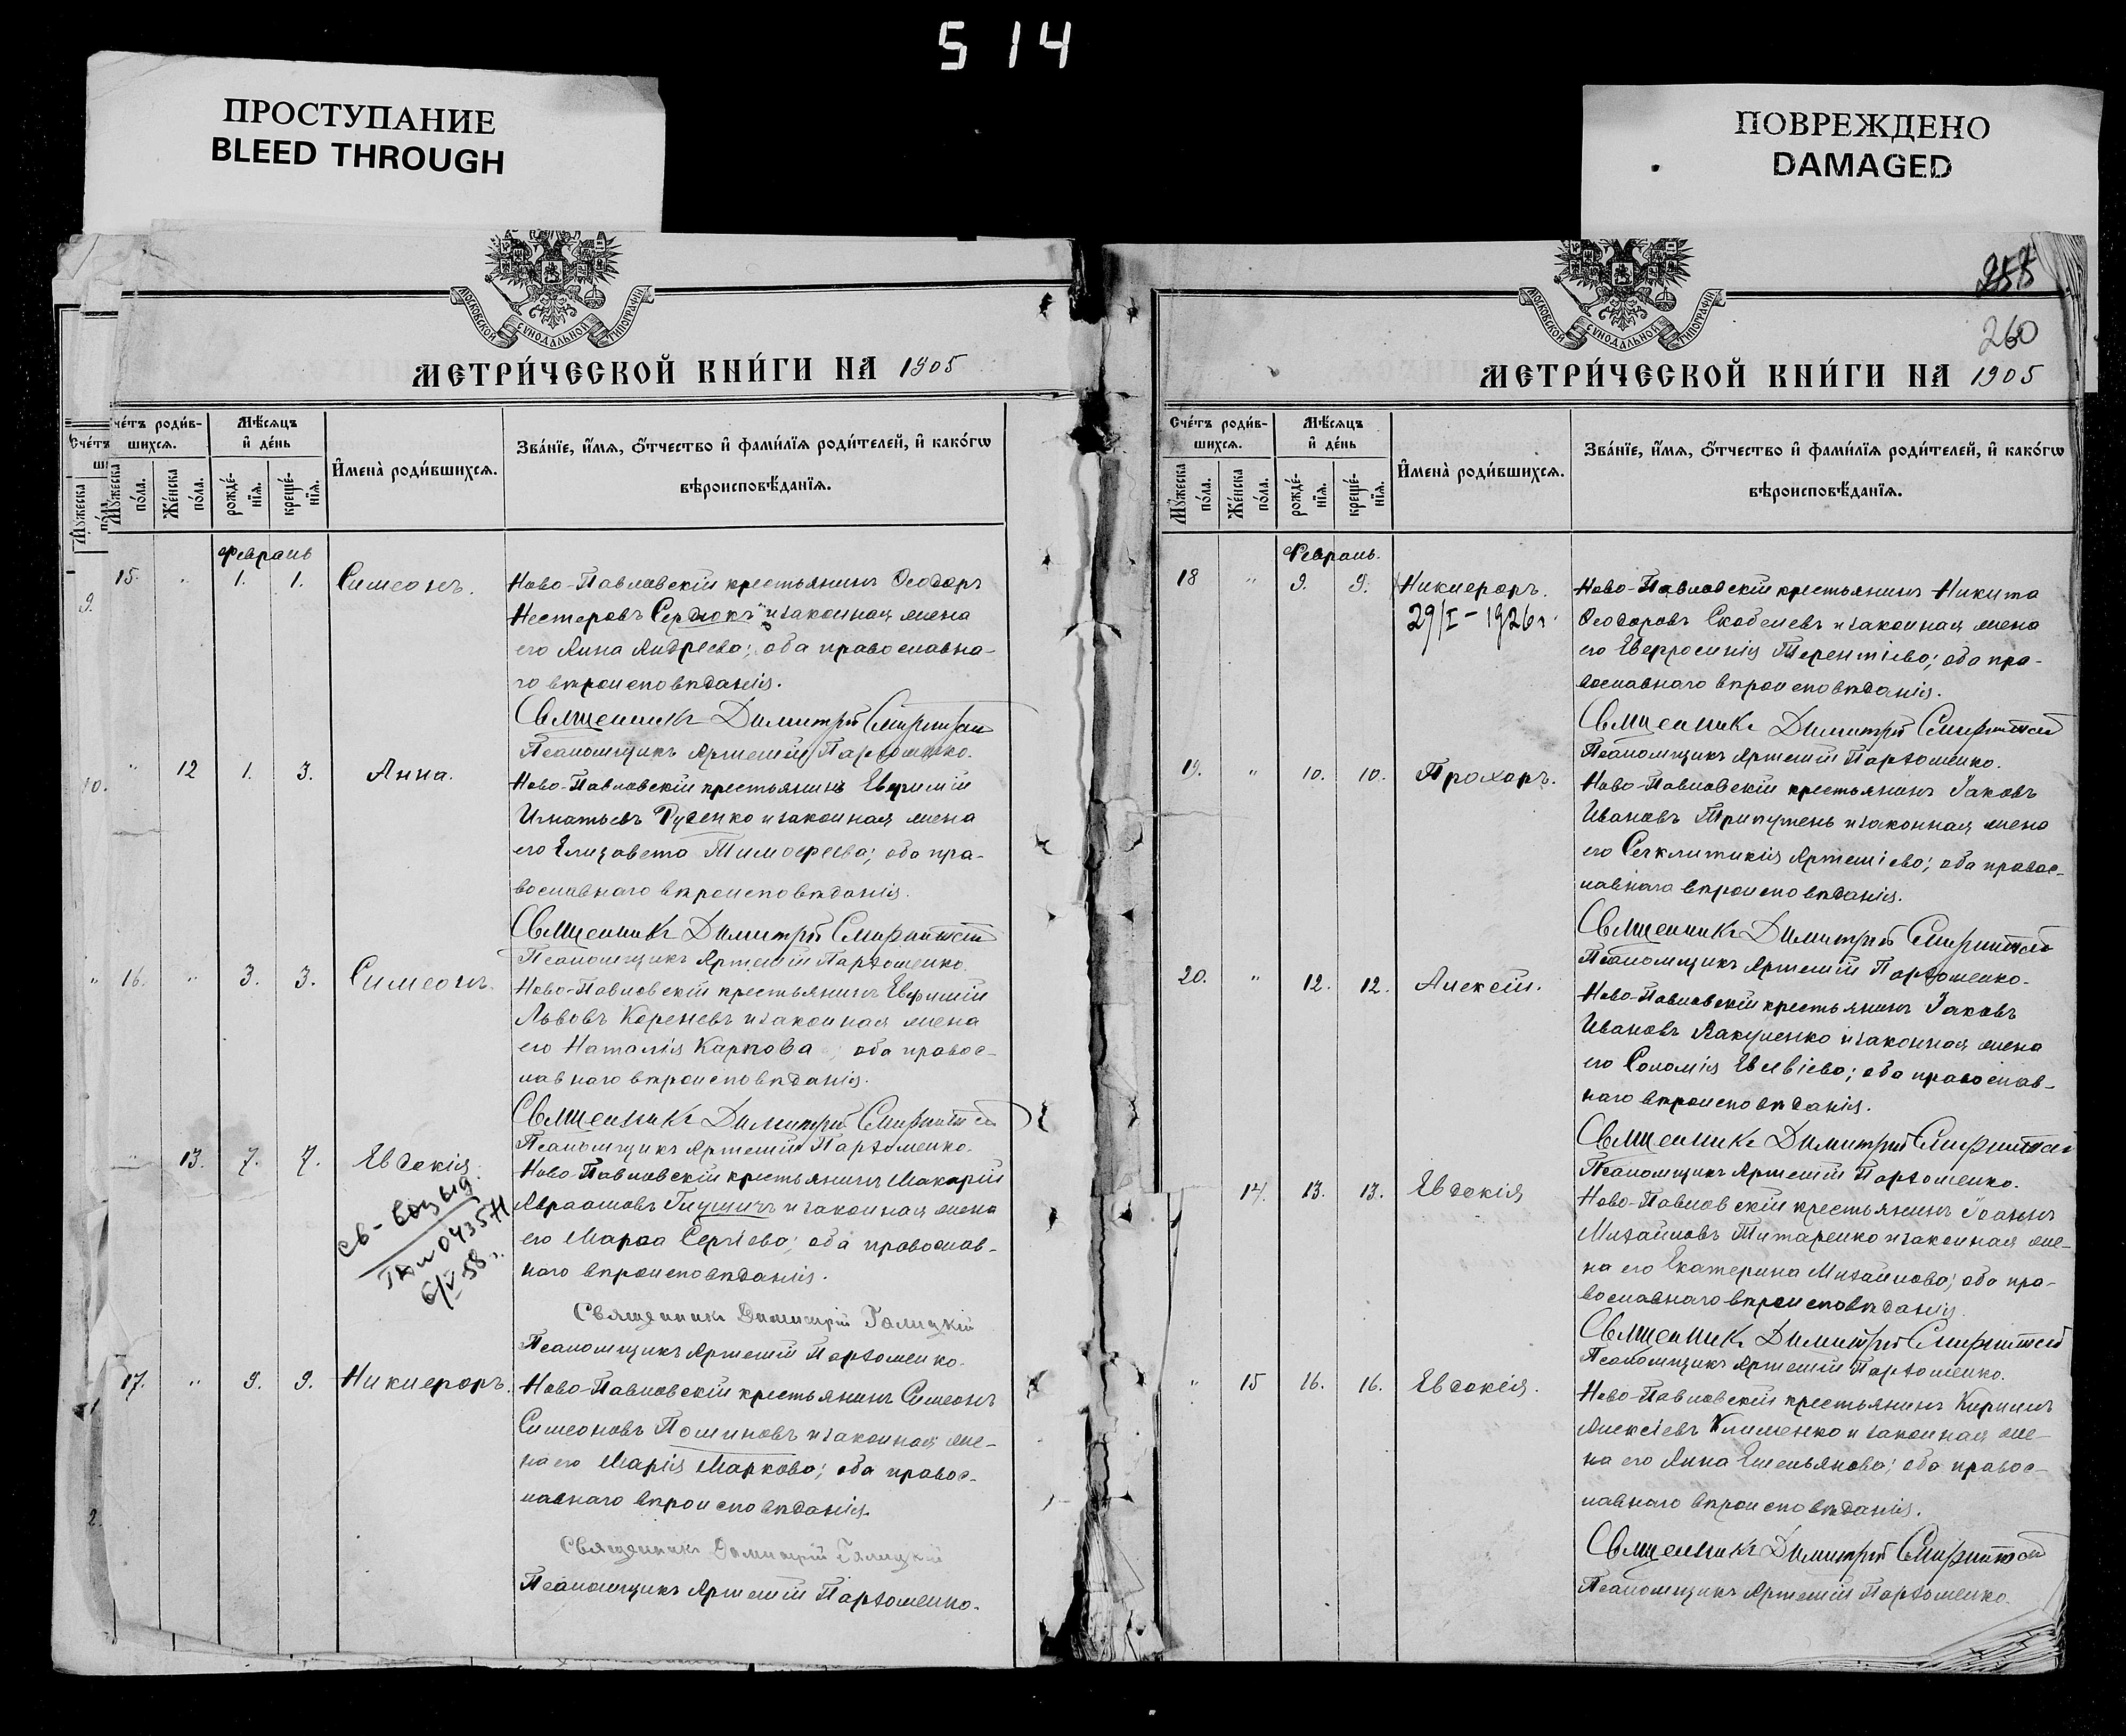 514
ПРОСТУПАНИЕ
BLEED THROUGH
ПОВРЕЖДЕНО
DAMAGED
МОСКОВСКОЙ СѴНОДАЛЬНОЙ ТИПОГРАФІИ
МЕТРИ́ЧЕСКОЙ КНИ́ГИ НА 1905
Сче́тъ роди́в-
шихсѧ.
Мѣ́сяцъ
и҆ де́нь
Мꙋ́жеска
по́ла.
Же́нска
по́ла.
рожде́-
нїѧ.
креще́-
нїѧ.
И҆мена̀ роди́вшихсѧ.
Зва́нїе, и҆́мѧ, ѻ҆́тчество и҆ фами́лїѧ роди́телей, и҆ како́гѡ
вѣроисповѣ́данїѧ.
Февраль
15. " 1. 1. Симеонъ.
Ново-Павловскій крестьянинъ Ѳеодоръ
Нестеровъ Сердюкъ и законная жена
его Анна Андреева; оба православна-
го вѣроисповѣданія.
Священникъ Димитрій
Псаломщикъ Артемій Пархоменко.
" 12 1. 3. Анна.
Ново-Павловскій крестьянинъ Евфимій
Игнатьевъ Руденко и законная жена
его Елизавета Тимофеева; оба пра-
вославнаго вѣроисповѣданія.
Священникъ Димитрій
Псаломщикъ Артемій Пархоменко.
" 16. " 3. 3. Симеонъ.
Ново-Павловскій крестьянинъ Евфимій
Львовъ Кореневъ и законная жена
его Наталія Карпова; оба правос-
лавнаго вѣроисповѣданія.
Священникъ Димитрій
Псаломщикъ Артемій Пархоменко.
" 13. 7. 7. Евдокія.
Ново-Павловскій крестьянинъ Макарій
Авраамовъ Глущичъ и законная жена
его Марѳа Сергіева; оба православ-
наго вѣроисповѣданія.
Священникъ Димитрій Галицкій
Псаломщикъ Артемій Пархоменко.
043571
6/V 58 г.
17. " 9. 9. Никифоръ.
Ново-Павловскій крестьянинъ Симеонъ
Симеоновъ Поминовъ и законная же-
на его Марія Маркова; оба правос-
лавнаго вѣроисповѣданія.
Священникъ Димитрій Галицкій
Псаломщикъ Артемій Пархоменко.
258
260
МОСКОВСКОЙ СѴНОДАЛЬНОЙ ТИПОГРАФІИ
МЕТРИ́ЧЕСКОЙ КНИ́ГИ НА 1905
Сче́тъ роди́в-
шихсѧ.
Мѣ́сяцъ
и҆ де́нь
Мꙋ́жеска
по́ла.
Же́нска
по́ла.
рожде́-
нїѧ.
креще́-
нїѧ.
И҆мена̀ роди́вшихсѧ.
Зва́нїе, и҆́мѧ, ѻ҆́тчество и҆ фами́лїѧ роди́телей, и҆ како́гѡ
вѣроисповѣ́данїѧ.
Февраль.
18 " 9. 9. Никифоръ.
29/I-1926 г.
Ново-Павловскій крестьянинъ Никита
Ѳеодоровъ Скобелевъ и законная жена
его Евфросинія Терентіева; оба пра-
вославнаго вѣроисповѣданія.
Священникъ Димитрій
Псаломщикъ Артемій Пархоменко.
19. " 10. 10. Прохоръ.
Ново-Павловскій крестьянинъ Іаковъ
Ивановъ Трипутень и законная жена
его Сегклитикія Артеміева; оба правос-
лавнаго вѣроисповѣданія.
Священникъ Димитрій
Псаломщикъ Артемій Пархоменко.
20. " 12. 12. Алексій.
Ново-Павловскій крестьянинъ Іаковъ
Ивановъ Вакуленко и законная жена
его Соломія Евсевіева; оба православ-
наго вѣроисповѣданія.
Священникъ Димитрій
Псаломщикъ Артемій Пархоменко.
14. 13. 13. Евдокія
Ново-Павловскій крестьянинъ Іоаннъ
Михайловъ Титаренко и законная же-
на его Екатерина Михайлова; оба пра-
вославнаго вѣроисповѣданія.
Священникъ Димитрій
Псаломщикъ Артемій Пархоменко.
" 15 16. 16. Евдокія.
Ново-Павловскій крестьянинъ Кириллъ
Алексіевъ Клименко и законная же-
на его Анна Емельянова; оба правос-
лавнаго вѣроисповѣданія.
Священникъ Димитрій
Псаломщикъ Артемій Пархоменко.